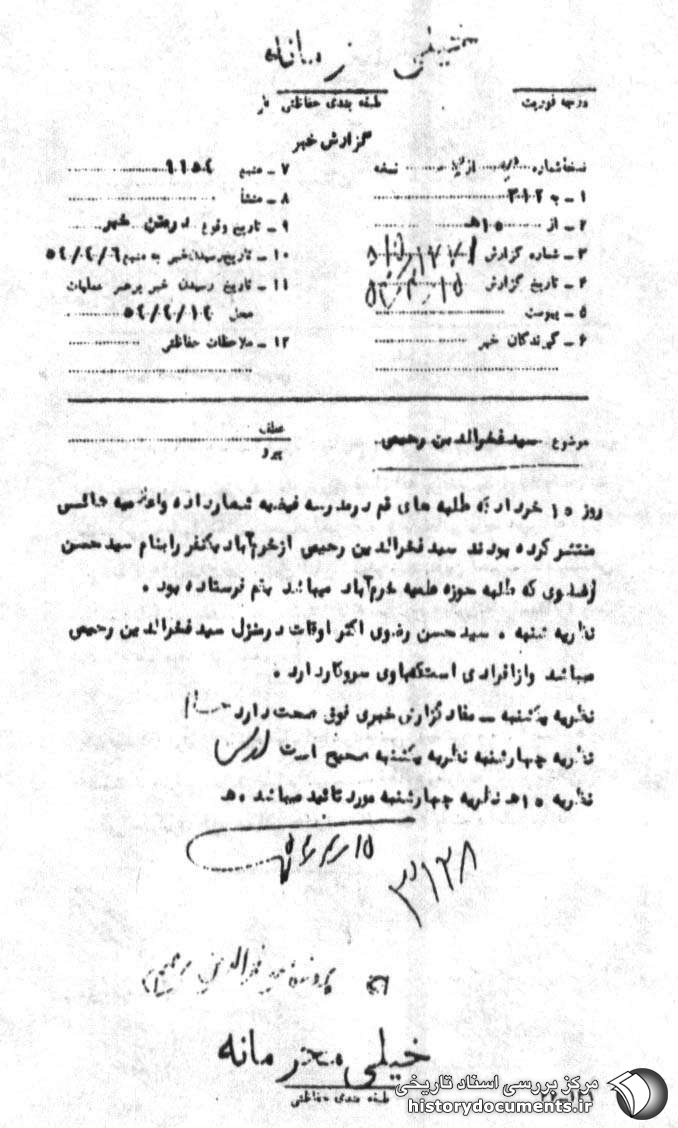 خیلی محرمانه
درجه فوریت
طبقه بندی حفاظتی
گزارش خبر
نسخه شماره از نسخه
۱ ـ به ۳۱۲
۲ ـ از ۱۵ هـ
۳ ـ شماره گزارش
۴ ـ تاریخ گزارش
۵ ـ پیوست
۶ ـ گیرندگان خبر
۷ ـ منبع
۸ ـ منشأ
۹ ـ تاریخ وقوع درمتن خبر
۱۰ ـ تاریخ رسیدن خبر به منبع ۵۴/۴/۶
۱۱ ـ تاریخ رسیدن خبر برهبر عملیات
محل ۵۴/۴/۱۴
۱۲ ـ ملاحظات حفاظتی
موضوع سید فخرالدین رحیمی
عطف
پیرو
روز ۱۵ خرداد که طلبه های قم درمدرسه فیضیه شعار داده واعلامیه هائی
منتشر کرده بودند سید فخرالدین رحیمی از خرم آباد یکنفر رابنام سید حسن
رضوی که طلبه حوزه علمیه خرم آباد میباشد بقم فرستاده بود .
نظریه شنبه . سید حسن رضوی اکثر اوقات درمنزل سید فخرالدین رحیمی
میباشد وازافرادی است که باوی سروکار دارد .
نظریه یکشنبه ـ مفاد گزارش خبری فوق صحت دارد
نظریه چهارشنبه نظریه یکشنبه صحیح است
نظریه ۱۵ هـ نظریه چهارشنبه مورد تائید میباشد . هـ
۳۱۲۸
پرونده سید فخرالدین رحیمی
خیلی محرمانه
طبقه بندی حفاظتی
مرکز بررسی اسناد تاریخی
historydocuments.ir